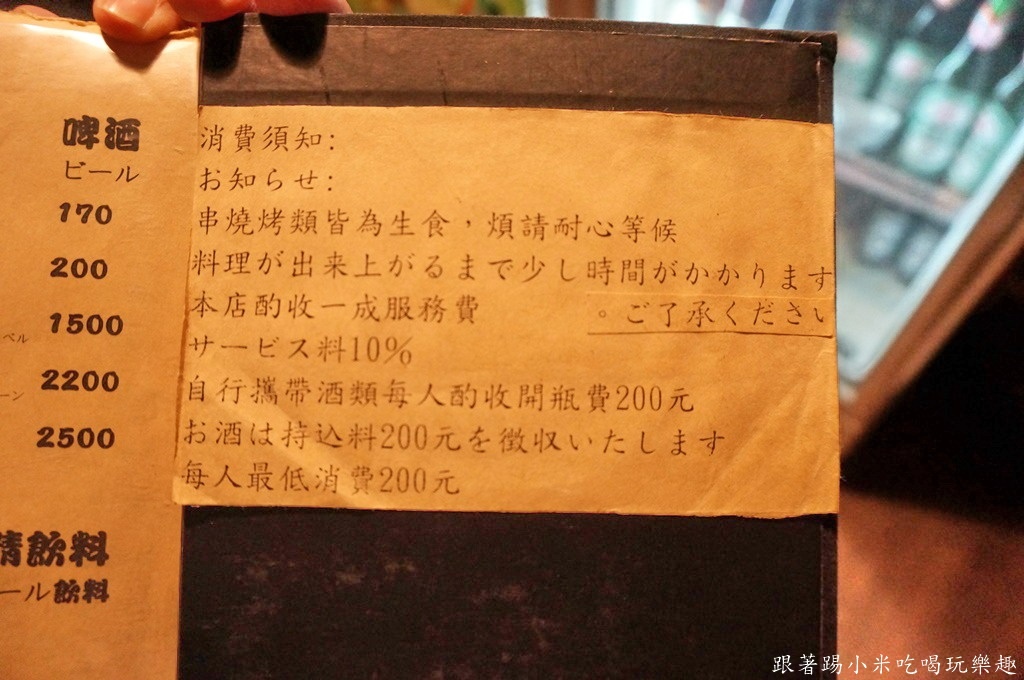 啤酒
ビール
170
200
1500
ベル
2200
ーン
2500
精飲料
ール飲料
消費須知:
お知らせ:
串燒烤類皆為生食，煩請耐心等候
料理が出来上がるまで少し時間がかかります
。ご了承ください
本店酌收一成服務費
サービス料10%
自行攜帶酒類每人酌收開瓶費200元
お酒は持込料200元を徴収いたします
每人最低消費200元
跟著踢小米吃喝玩樂趣